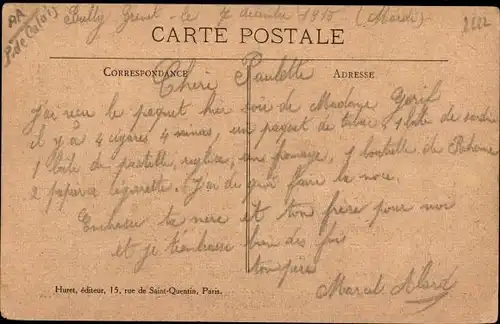 AA
P. de Calais
Bully Grenet - le 7 decembre 1915 (Mardi)
CARTE POSTALE
CORRESPONDANCE
ADRESSE
Cheri Paulette
J'ai recu le paquet hier soir de Madame
il y à 4 cigares 4 ninas, un paquet de tabac, 1 boite de
1 boite de pastille, reglise, un fromage, 1 bouteille de
2 papier a cigarette. J'ai de quoi faire la noce.
Embrasse ta mere et ton frère pour moi
et je t'embrasse bien des fois
ton père
Marcel
Huret, éditeur, 15, rue de Saint-Quentin, Paris.